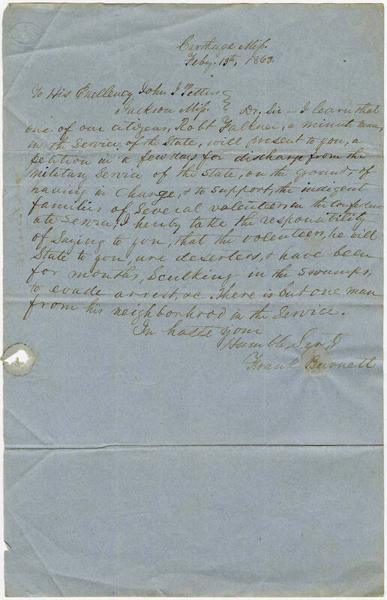 Carthage Miss.
Feby. 13th, 1863.
To His Excellency John J Pettus
Jackson Miss. } Dr. Sir – I learn that
one of our citizens, Robt Falkner, a minute man,
in the Service of the State, will present to you, a
petition in a few days for discharge from the
military Service of the State, on the ground, of
having in charge, & to support, the indigent
families of Several volunteers in the Confeder-
ate Service, I hereby take the responsibility
of Saying to you, that the volunteers, he will
State to you, are deserters, & have been
for months, Sculking in the Swamps,
to evade arrest, &c. There is but one man
from his neighborhood in the Service.
In haste your
Humble Servt
Frank Burnett